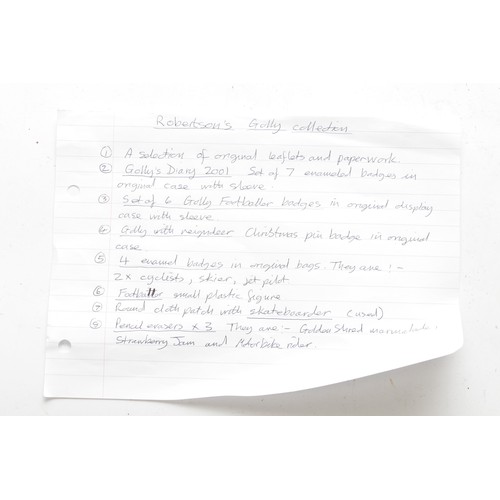 Robertson's Golly collection
① A selection of original leaflets and paperwork.
② Golly's Diary 2001 Set of 7 enameled badges in
original case with sleeve.
③ Set of 6 Golly Footballer badges in original display
case with sleeve
④ Golly with reigndeer Christmas pin badge in original
case
⑤ 4 enamel badges in original bags. They are :-
2x cyclists, skier, jet pilot
⑥ Footballer small plastic figure
⑦ Round cloth patch with skateboarder (used)
⑧ Pencil erasers x 3 They are :- Golden Shred marmalade,
Strawberry Jam and Motorbike rider.